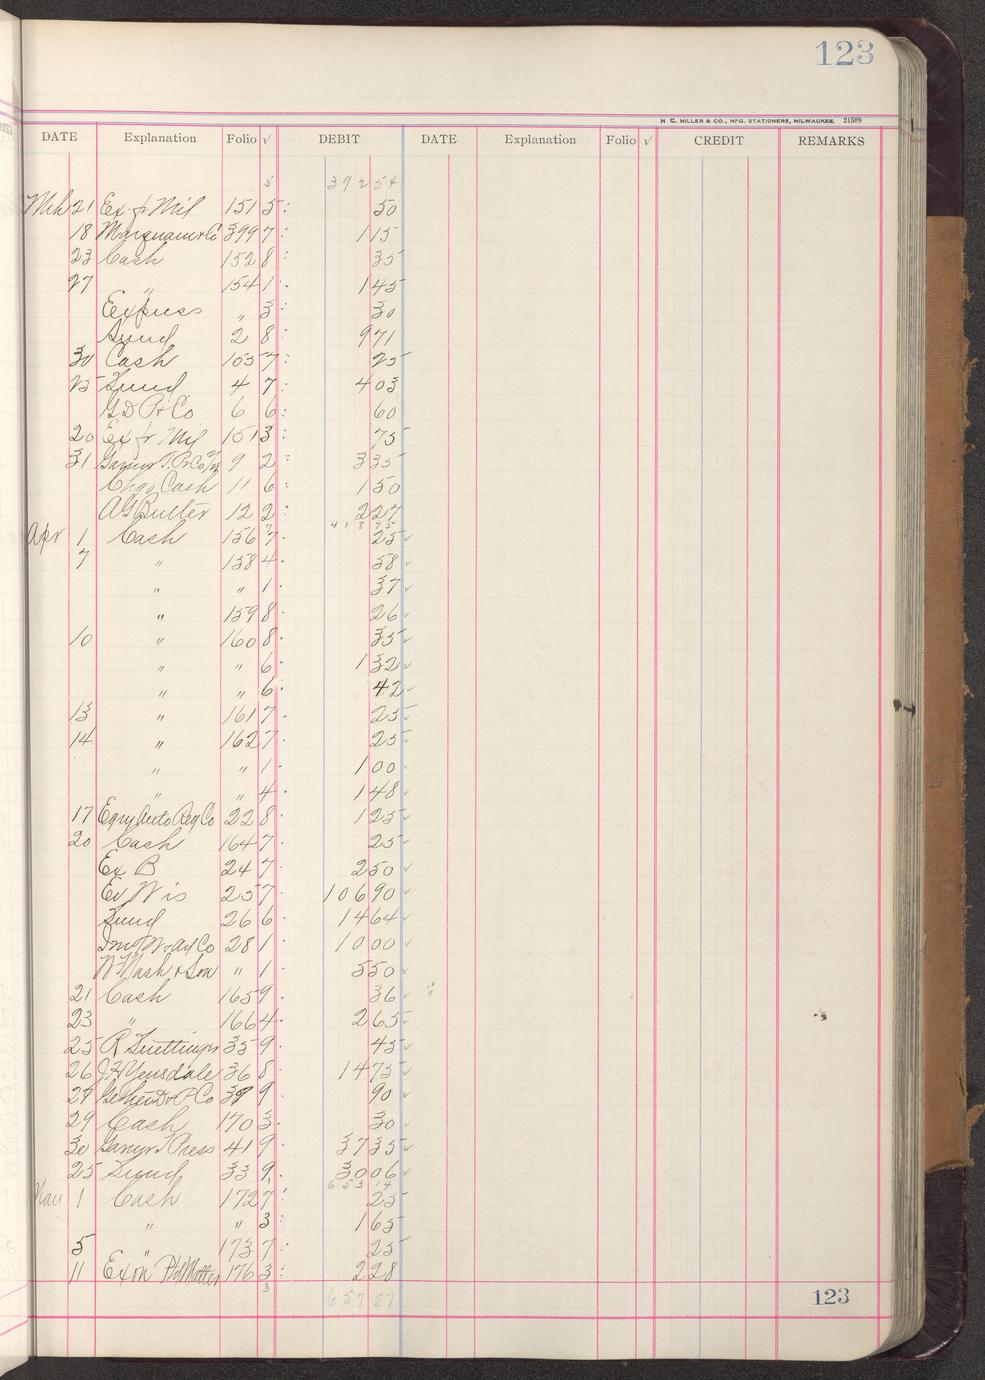 123
H. C. MILLER & CO., MFG. STATIONERS, MILWAUKEE. 21588
DATE Explanation Folio √ DEBIT DATE Explanation Folio √ CREDIT REMARKS
5 392 54
Mch 21 Ex fr Mil 151 5 50
18 Marquam & Co 399 7 1 15
23 Cash 152 8 35
27 " 154 1 1 45
Express " 3 30
Sund 2 8 9 71
30 Cash 155 7 25
25 Sund 4 7 4 03
G D P & Co 6 6 60
20 Ex fr Mil 151 3 75
31 9 2 3 35
Chgo Cash 11 6 1 50
A G Butler 12 2 2 27
418 75
Apr 1 Cash 156 7 25
7 " 158 4 58
" " 1 37
" 159 8 26
10 " 160 8 35
" " 6 1 32
" " 6 42
13 " 161 7 25
14 " 162 7 25
" " 1 1 00
" " 4 1 48
17 Auto Reg Co 22 8 1 25
20 Cash 164 7 25
Ex B 24 7 2 50
Ex Wis 25 7 106 90
Sund 26 6 14 64
Co 28 1 10 00
W Nash & Son " 1 5 50
21 Cash 165 9 36
23 " 166 4 2 65
25 R Suettinger 35 9 45
26 J H Yewsdale 36 8 14 75
27 P Co 39 9 90
29 Cash 170 3 30
30 Press 41 9 37 35
25 Sund 33 9 30 06
653 14
May 1 Cash 172 7 25
" " 3 1 65
5 " 173 7 25
11 Ex on Ptd Matter 176 3 2 28
3 657 57
123